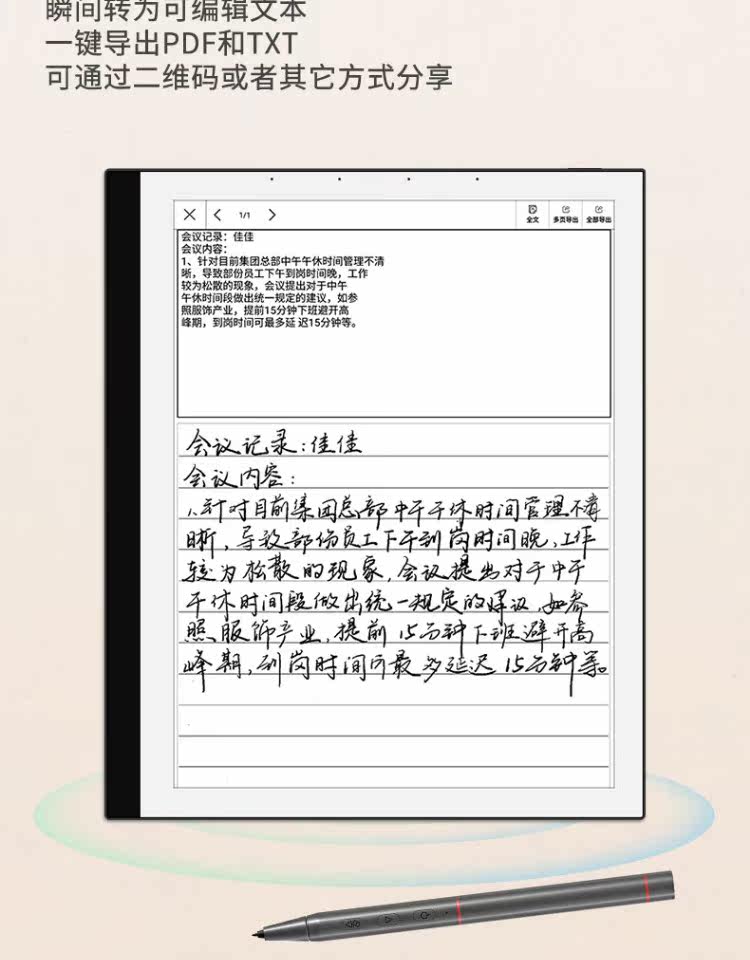 瞬间转为可编辑文本
一键导出PDF和TXT
可通过二维码或者其它方式分享
1/1
全文
多页导出
全部导出
会议记录：佳佳
会议内容：
1、针对目前集团总部中午午休时间管理不清
晰，导致部份员工下午到岗时间晚，工作
较为松散的现象，会议提出对于中午
午休时间段做出统一规定的建议，如参
照服饰产业，提前15分钟下班避开高
峰期，到岗时间可最多延 迟15分钟等。
会议记录：佳佳
会议内容：
1、针对目前集团总部中午午休时间管理不清
晰，导致部份员工下午到岗时间晚，工作
较为松散的现象，会议提出对于中午
午休时间段做出统一规定的建议，如参
照服饰产业，提前15分钟下班避开高
峰期，到岗时间可最多延迟15分钟等。